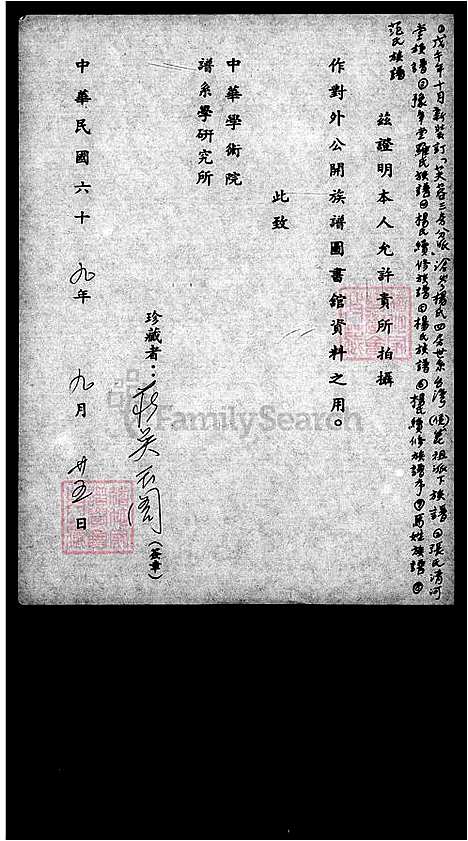 ①戊午年十月新裝訂「芙蓉三房分派、滄岑楊氏四房世系台灣(從苑祖派下族譜②張氏清河
堂族譜③豫章堂羅氏族譜④楊氏續修族譜⑤楊氏族譜⑥楊氏續修族譜序⑦馬姓族譜⑧
范氏族譜
茲證明本人允許貴所拍攝
作對外公開族譜圖書館資料之用。
此致
中華學術院
譜系學研究所
珍藏者：
(簽章)
中華民國六十九年九月廿五日
FamilySearch